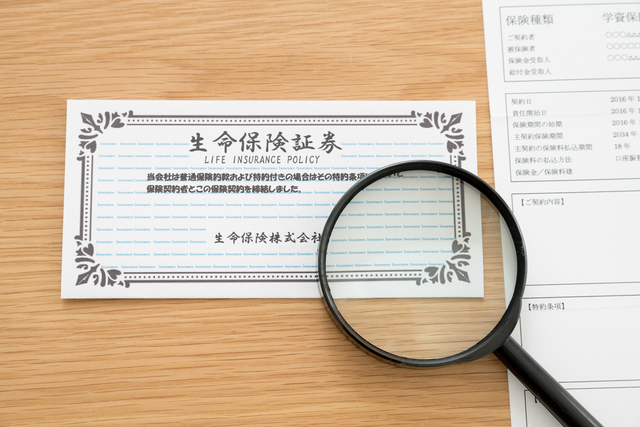 生命保険証券
LIFE INSURANCE POLICY
当会社は普通保険約款および特約付きの場合はその特約条項
保険契約者とこの保険契約を締結しました。
生命保険株式会社
保険種類 学資保
ご契約者 ○○○△△
被保険者 ○○○○○
保険金受取人 ○○○△
給付金受取人
契約日 2016 年 1
責任開始日 2016 年
保険期間の始期 2016 年
主契約保険期間 2034 年
主契約の保険料払込期間 18 年
保険料の払込方法 口座振
保険金／保険料様
【ご契約内容】
【特約条項】